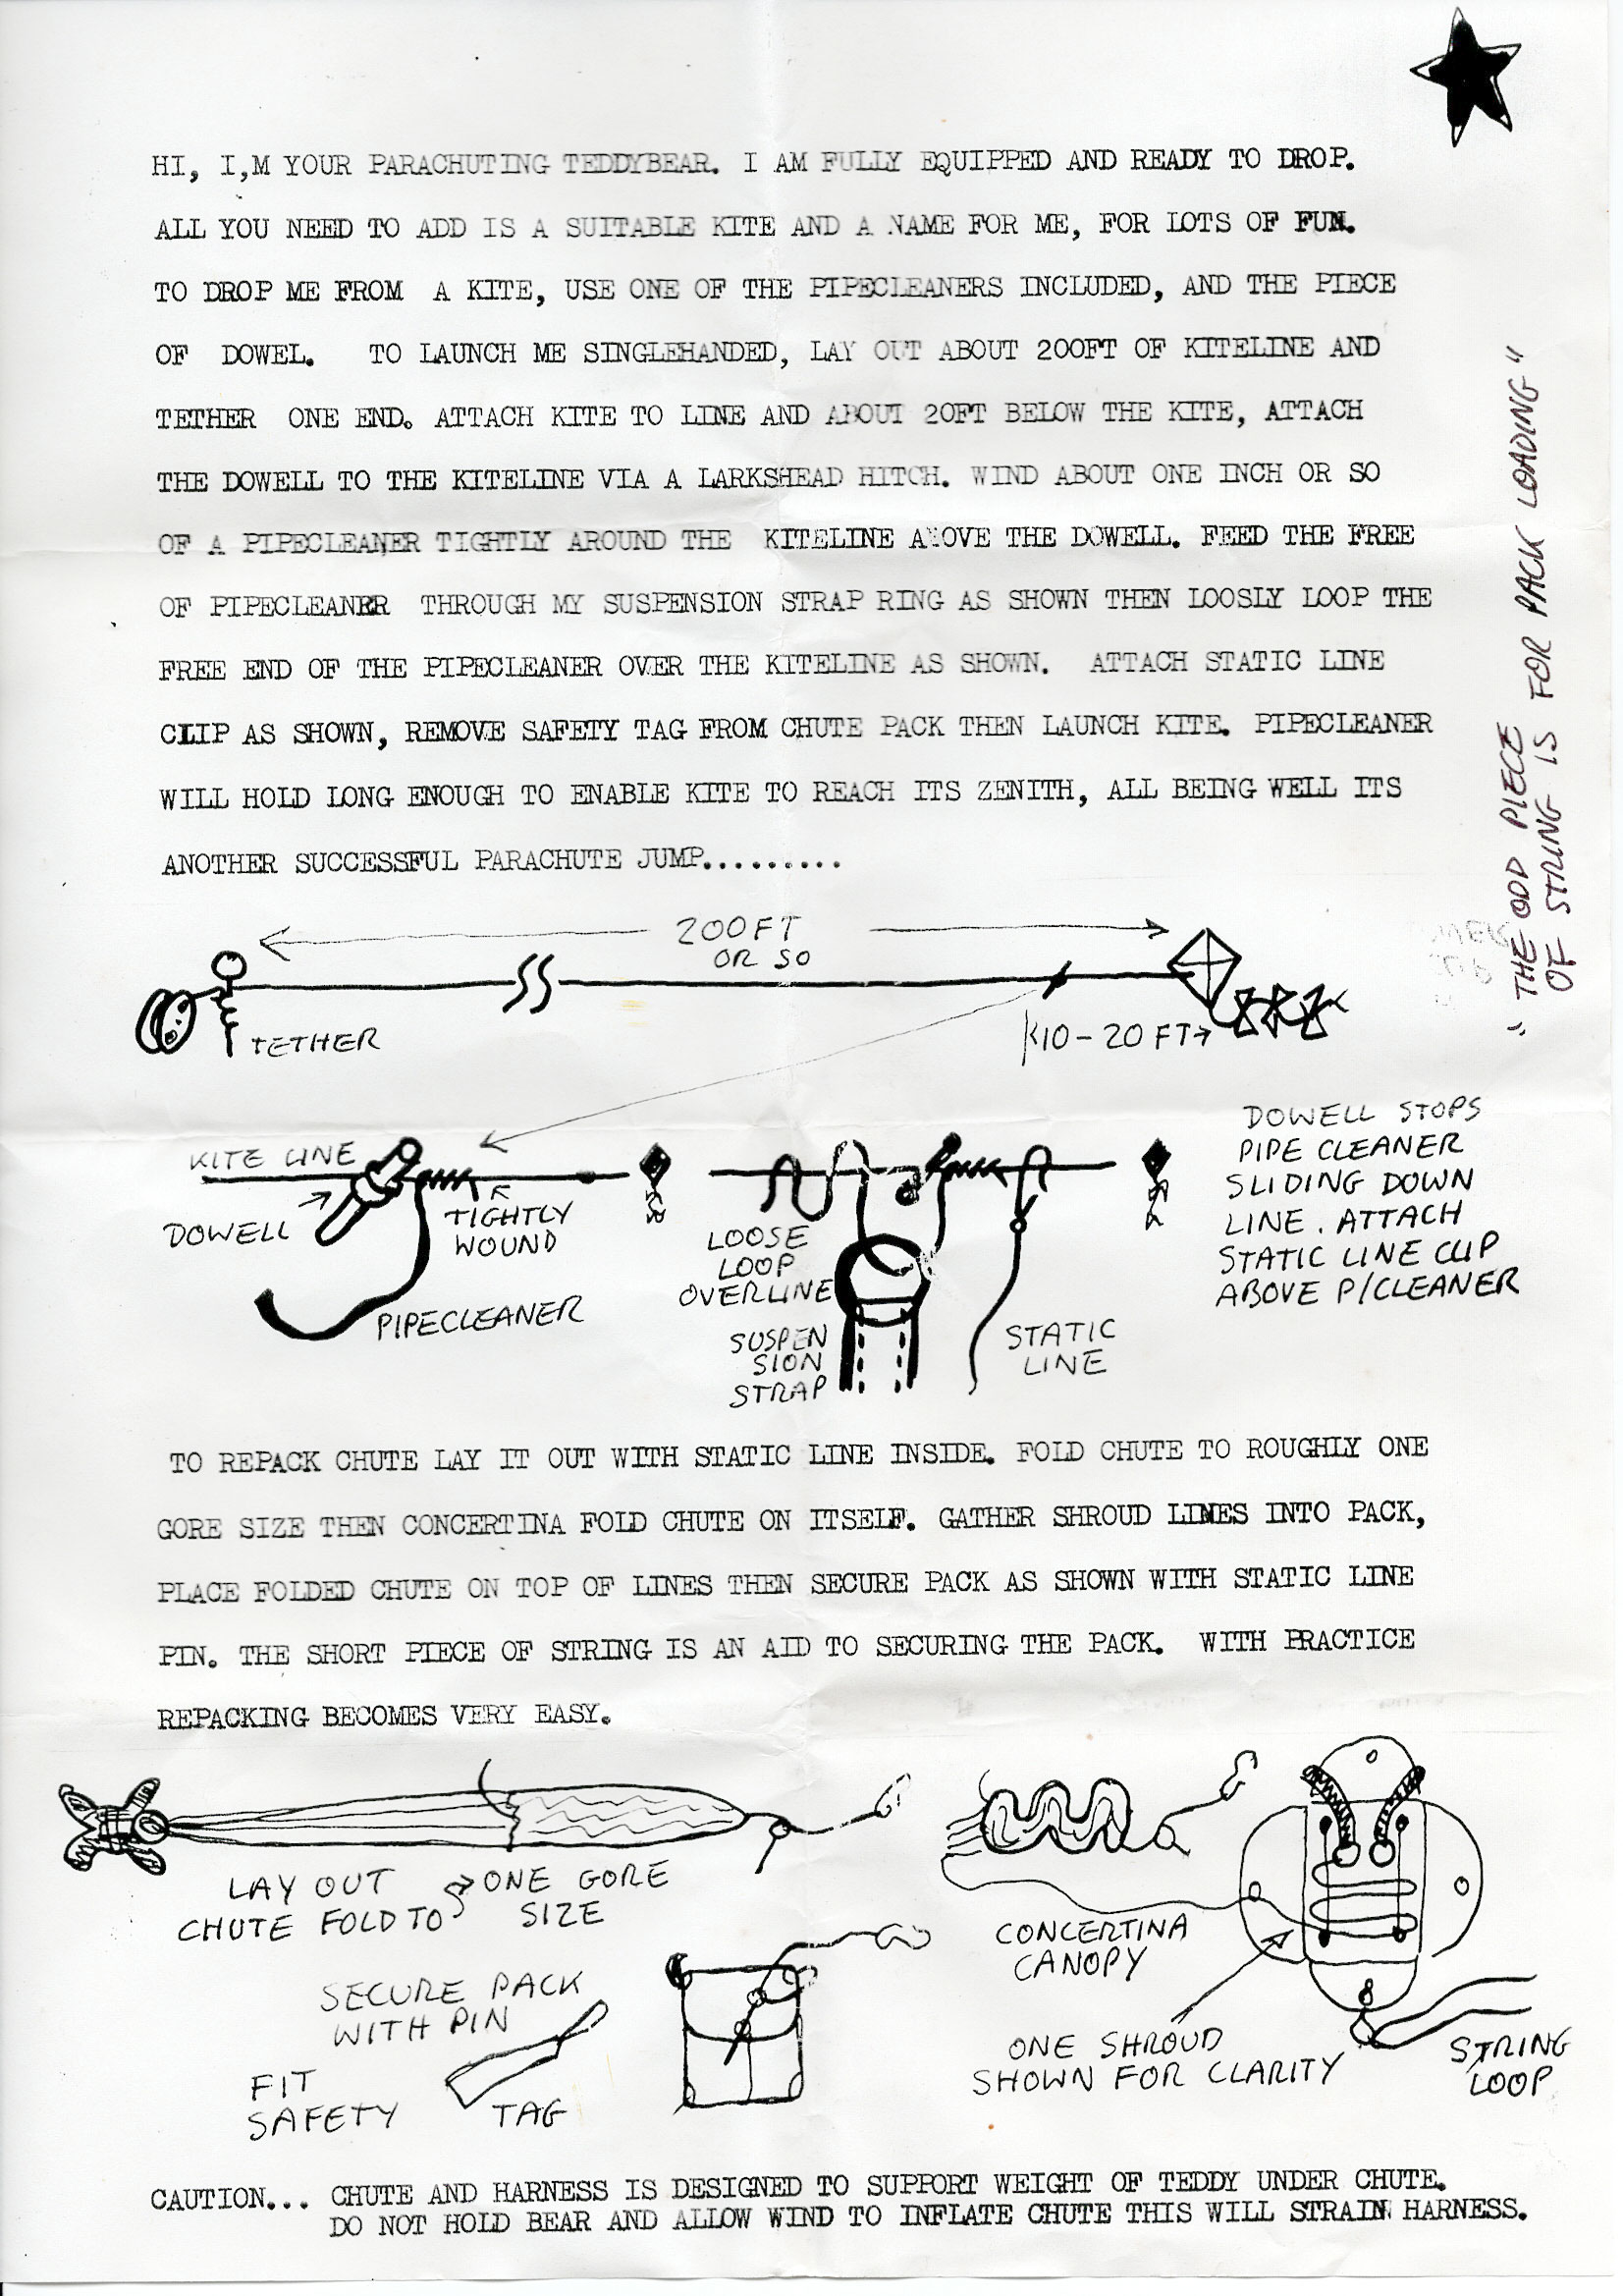 HI, I,M YOUR PARACHUTING TEDDYBEAR. I AM FULLY EQUIPPED AND READY TO DROP.
ALL YOU NEED TO ADD IS A SUITABLE KITE AND A NAME FOR ME, FOR LOTS OF FUN.
TO DROP ME FROM A KITE, USE ONE OF THE PIPECLEANERS INCLUDED, AND THE PIECE
OF DOWEL. TO LAUNCH ME SINGLEHANDED, LAY OUT ABOUT 200FT OF KITELINE AND
TETHER ONE END. ATTACH KITE TO LINE AND ABOUT 20FT BELOW THE KITE, ATTACH
THE DOWELL TO THE KITELINE VIA A LARKSHEAD HITCH. WIND ABOUT ONE INCH OR SO
OF A PIPECLEANER TIGHTLY AROUND THE KITELINE ABOVE THE DOWELL. FEED THE FREE
OF PIPECLEANER THROUGH MY SUSPENSION STRAP RING AS SHOWN THEN LOOSLY LOOP THE
FREE END OF THE PIPECLEANER OVER THE KITELINE AS SHOWN. ATTACH STATIC LINE
CLIP AS SHOWN, REMOVE SAFETY TAG FROM CHUTE PACK THEN LAUNCH KITE. PIPECLEANER
WILL HOLD LONG ENOUGH TO ENABLE KITE TO REACH ITS ZENITH, ALL BEING WELL ITS
ANOTHER SUCCESSFUL PARACHUTE JUMP.........
"THE ODD PIECE
OF STRING IS FOR PACK LOADING"
200FT
OR SO
TETHER
10-20FT
KITE LINE
DOWELL
TIGHTLY
WOUND
PIPECLEANER
LOOSE
LOOP
OVERLINE
SUSPEN
SION
STRAP
STATIC
LINE
DOWELL STOPS
PIPE CLEANER
SLIDING DOWN
LINE. ATTACH
STATIC LINE CLIP
ABOVE P/CLEANER
TO REPACK CHUTE LAY IT OUT WITH STATIC LINE INSIDE. FOLD CHUTE TO ROUGHLY ONE
GORE SIZE THEN CONCERTINA FOLD CHUTE ON ITSELF. GATHER SHROUD LINES INTO PACK,
PLACE FOLDED CHUTE ON TOP OF LINES THEN SECURE PACK AS SHOWN WITH STATIC LINE
PIN. THE SHORT PIECE OF STRING IS AN AID TO SECURING THE PACK. WITH PRACTICE
REPACKING BECOMES VERY EASY.
LAY OUT
CHUTE FOLD TO
ONE GORE
SIZE
CONCERTINA
CANOPY
SECURE PACK
WITH PIN
FIT
SAFETY
TAG
ONE SHROUD
SHOWN FOR CLARITY
STRING
LOOP
CAUTION... CHUTE AND HARNESS IS DESIGNED TO SUPPORT WEIGHT OF TEDDY UNDER CHUTE.
DO NOT HOLD BEAR AND ALLOW WIND TO INFLATE CHUTE THIS WILL STRAIN HARNESS.